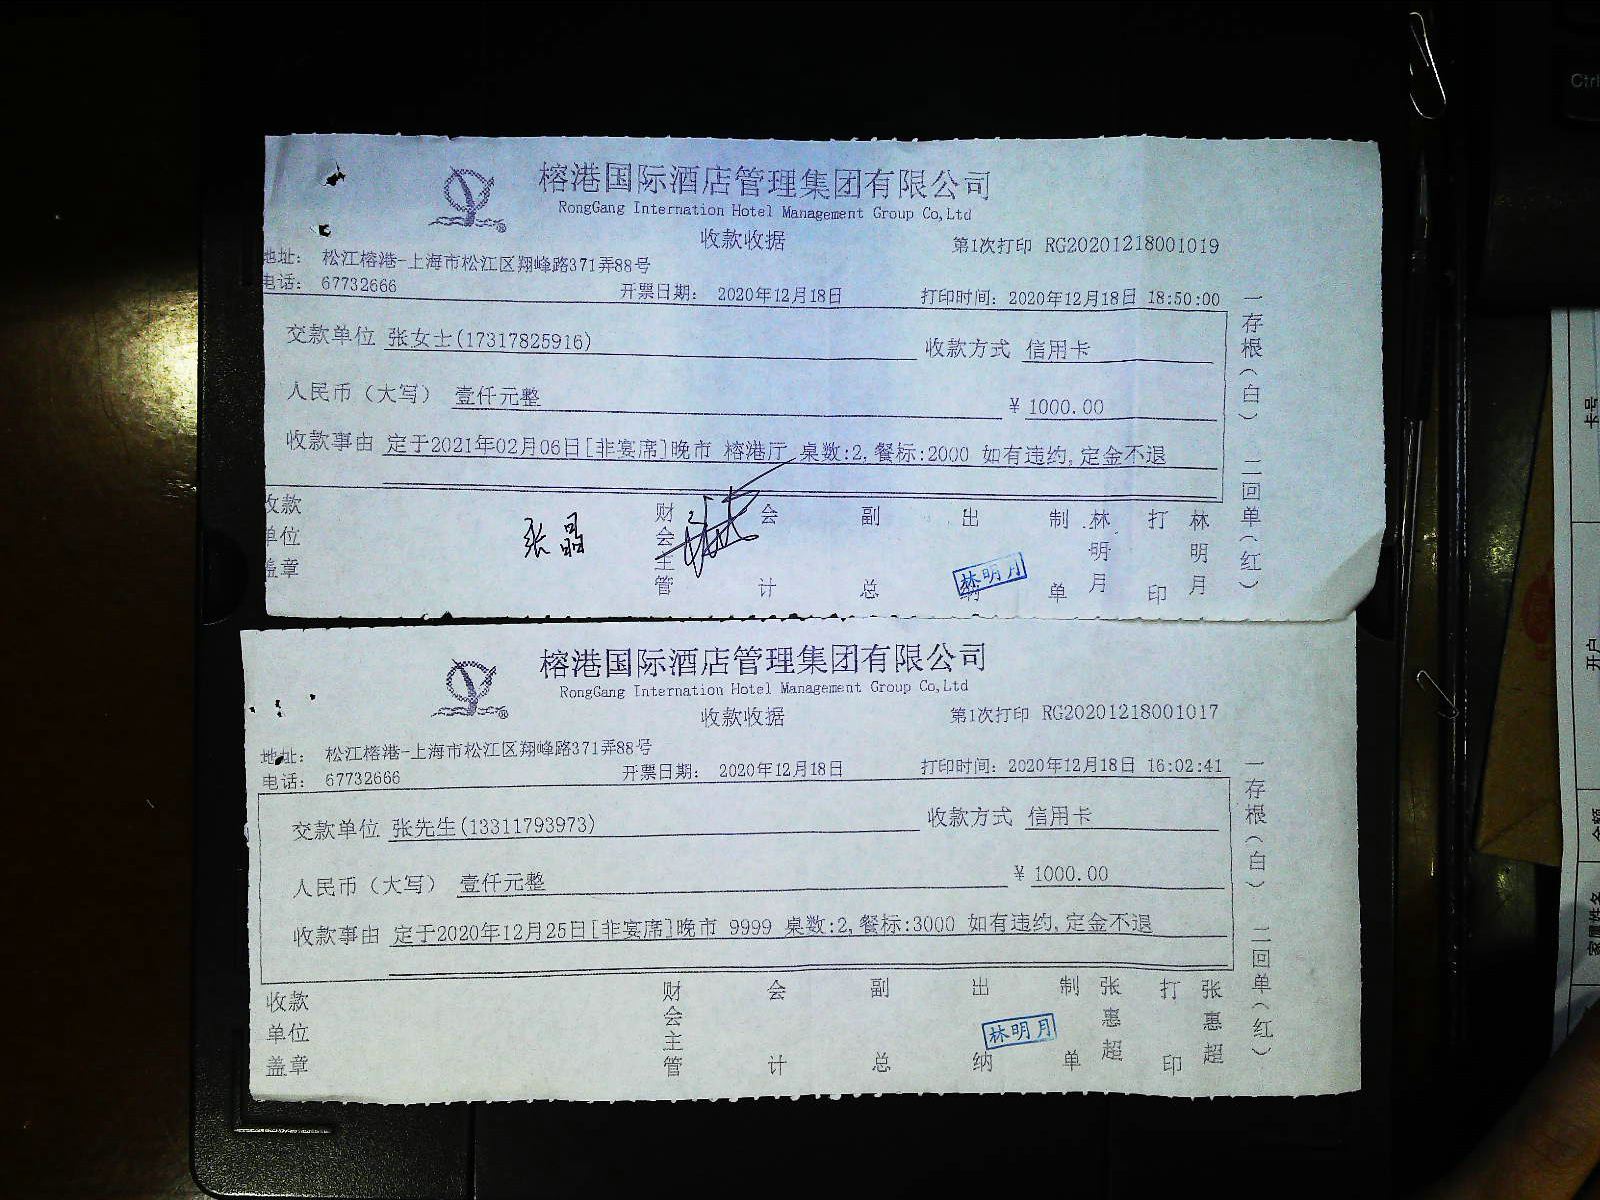 榕港国际酒店管理集团有限公司
RongGang Internation Hotel Management Group Co,Ltd
收款收据
第1次打印 RG20201218001019
地址： 松江榕港-上海市松江区翔峰路371弄88号
电话： 67732666
开票日期： 2020年12月18日
打印时间： 2020年12月18日 18:50:00
交款单位 张女士(17317825916)
收款方式 信用卡
人民币（大写） 壹仟元整
¥ 1000.00
收款事由 定于2021年02月06日[非宴席]晚市 榕港厅 桌数:2,餐标:2000 如有违约,定金不退
收款单位盖章
张晶
财会主管
会计
副总
出纳
林明月
制单 林明月
打印 林明月
一存根（白） 二回单（红）
榕港国际酒店管理集团有限公司
RongGang Internation Hotel Management Group Co,Ltd
收款收据
第1次打印 RG20201218001017
地址： 松江榕港-上海市松江区翔峰路371弄88号
电话： 67732666
开票日期： 2020年12月18日
打印时间： 2020年12月18日 16:02:41
交款单位 张先生(13311793973)
收款方式 信用卡
人民币（大写） 壹仟元整
¥ 1000.00
收款事由 定于2020年12月25日[非宴席]晚市 9999 桌数:2,餐标:3000 如有违约,定金不退
收款单位盖章
财会主管
会计
副总
出纳
林明月
制单 张惠超
打印 张惠超
一存根（白） 二回单（红）
Ctrl
卡号
开户
金额
家属姓名